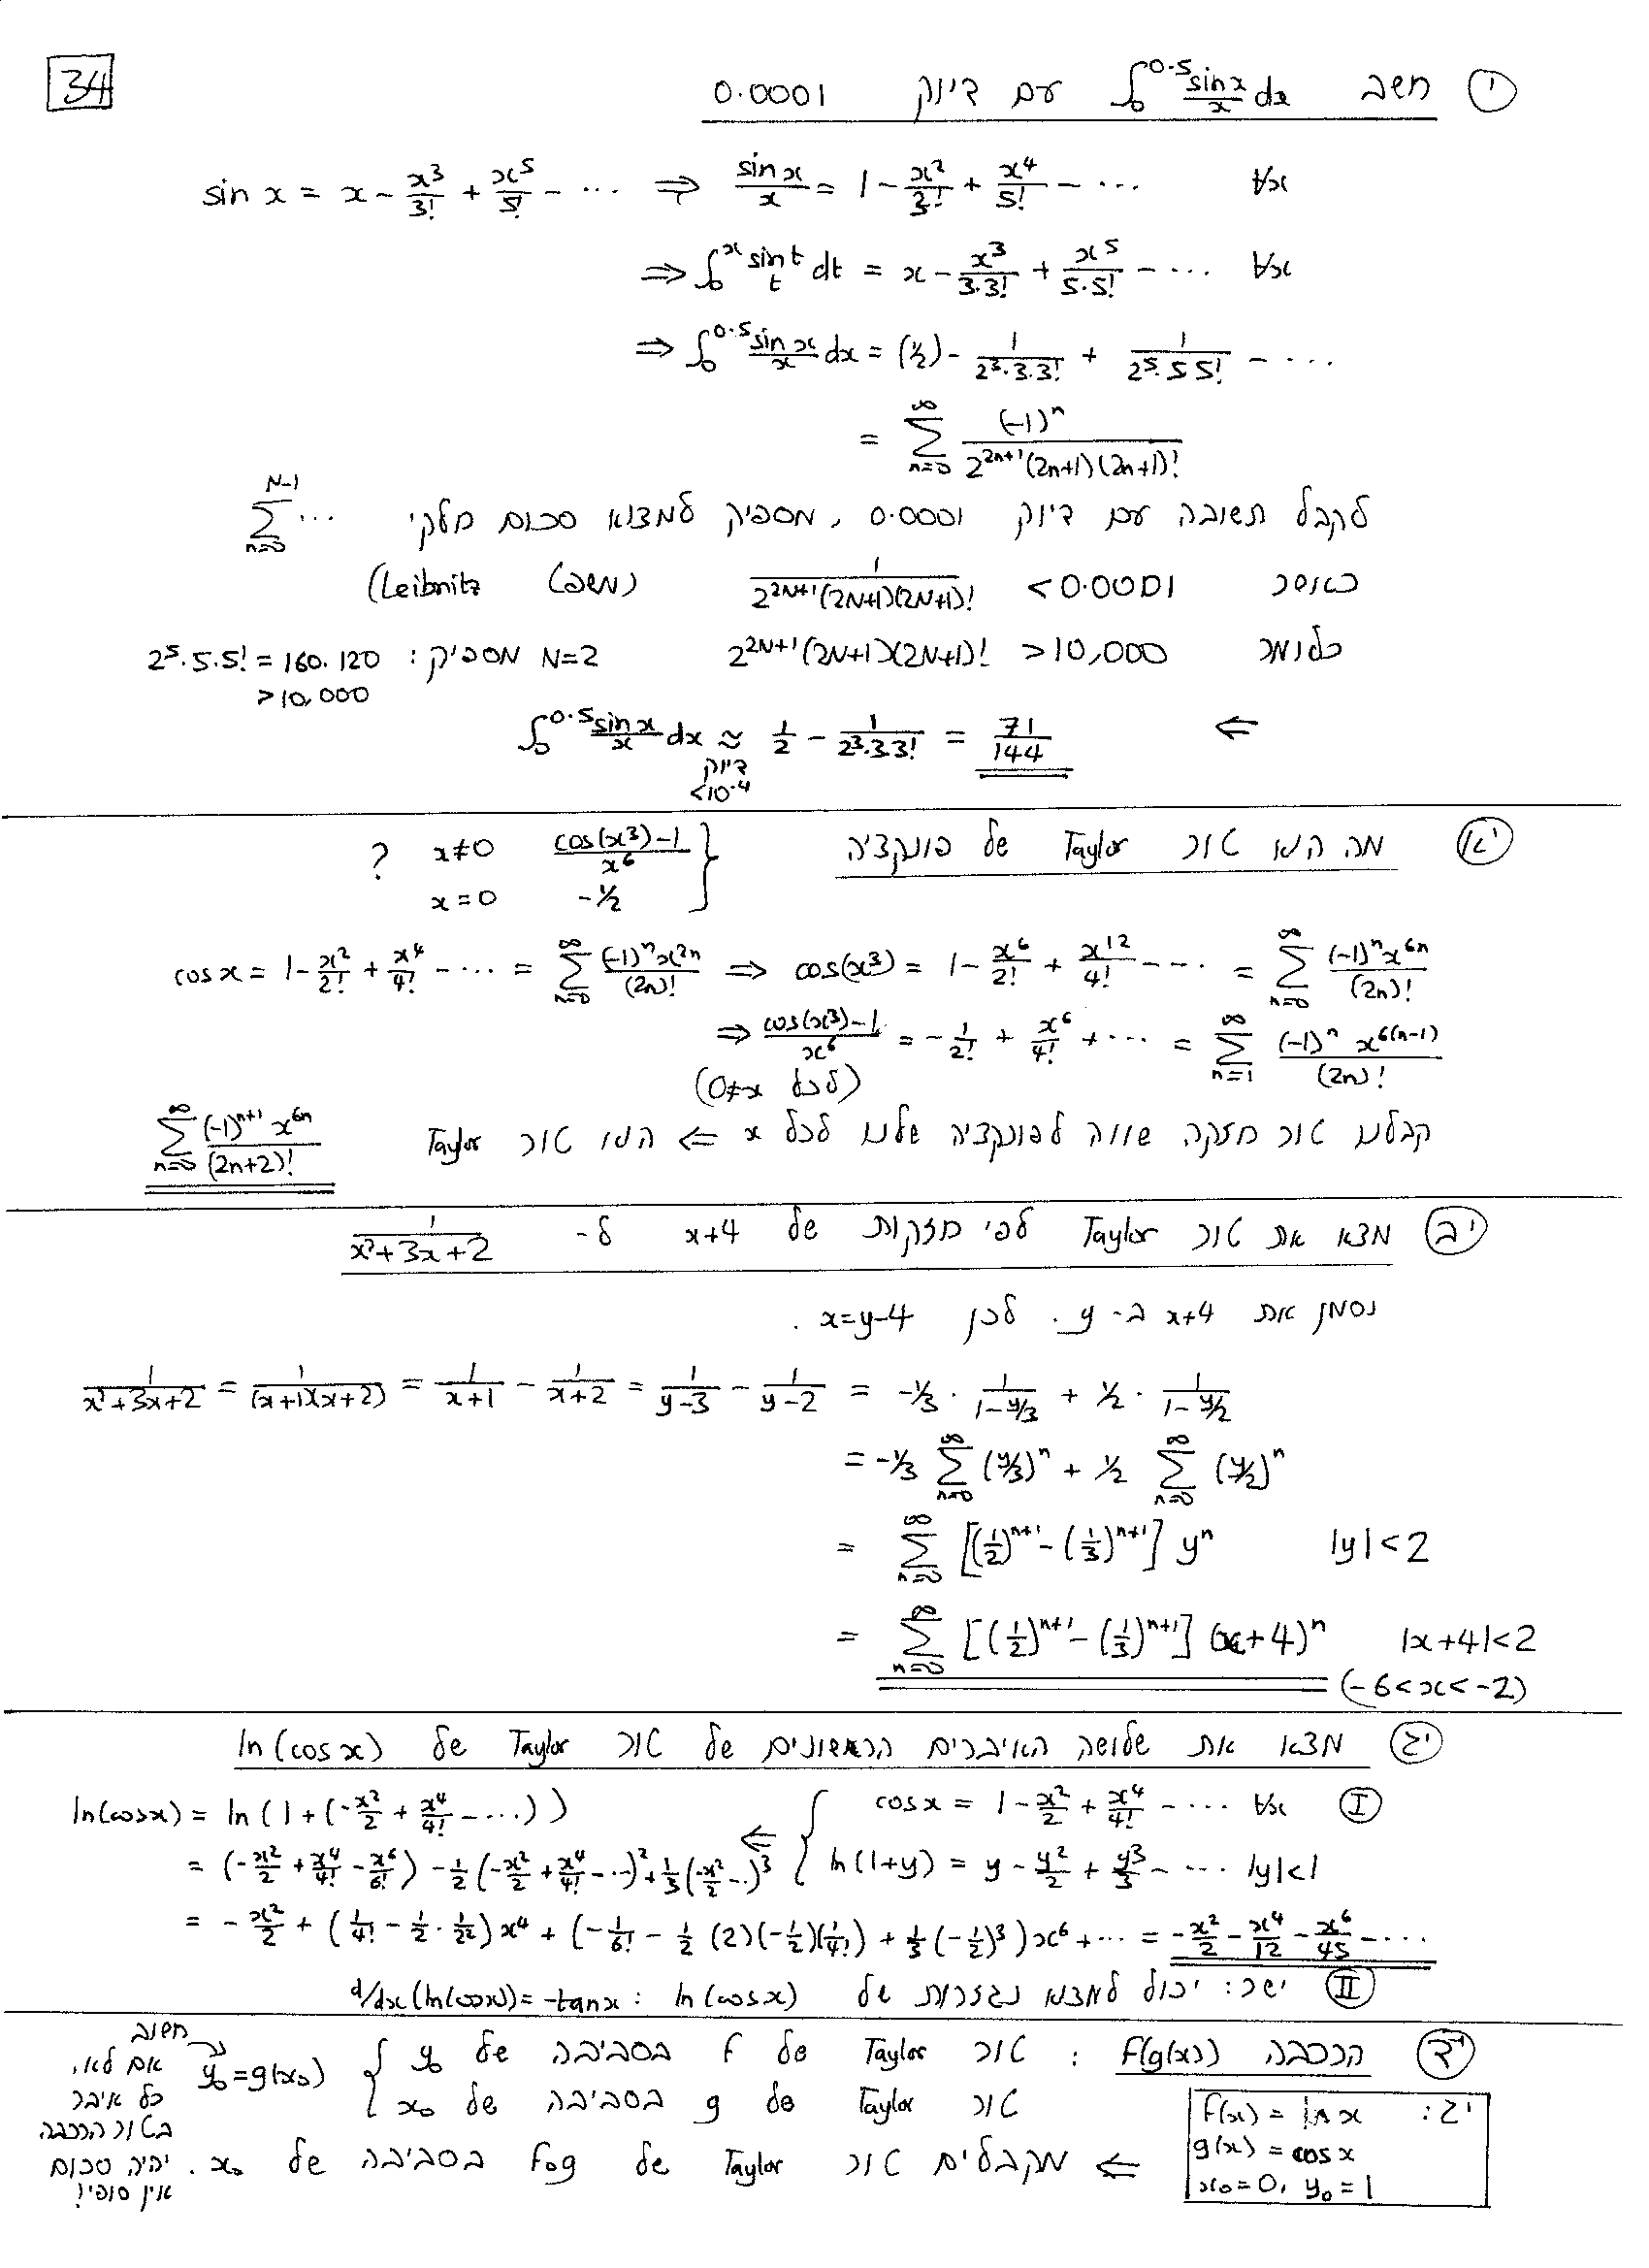 34
① חשב ∫₀^0.5 sinx/x dx עם דיוק 0.0001
sin x = x - x³/3! + x⁵/5! - ... ⇒ sinx/x = 1 - x²/3! + x⁴/5! - ... ∀x
⇒ ∫₀^x sint/t dt = x - x³/3.3! + x⁵/5.5! - ... ∀x
⇒ ∫₀^0.5 sinx/x dx = (½) - 1/2³.3.3! + 1/2⁵.5 5! - ....
= ∑_{n=0}^∞ (-1)ⁿ/2^{2n+1}(2n+1)(2n+1)!
לקבל תשובה עם דיוק 0.0001, מספיק למצוא סכום חלקי ∑_{n=0}^{N-1} ...
כאשר 1/2^{2N+1}(2N+1)(2N+1)! < 0.0001 (משפט Leibnitz)
כלומר 2^{2N+1}(2N+1)(2N+1)! > 10,000 N=2 מספיק: 2⁵.5.5! = 160.120
> 10,000
⇐ ∫₀^0.5 sinx/x dx ≈ ½ - 1/2³.3 3! = 71/144
דיוק
<10⁻⁴
יא מה הוא טור Taylor של פונקציה { (cos(x³)-1)/x⁶ x≠0 ?
-½ x=0
cos x = 1 - x²/2! + x⁴/4! - ... = ∑_{n=0}^∞ (-1)ⁿx^{2n}/(2n)! ⇒ cos(x³) = 1 - x⁶/2! + x¹²/4! - ... = ∑_{n=0}^∞ (-1)ⁿx^{6n}/(2n)!
⇒ (cos(x³)-1)/x⁶ = -1/2! + x⁶/4! + ... = ∑_{n=1}^∞ (-1)ⁿ x^{6(n-1)}/(2n)!
(לכל x≠0)
קבלנו טור חזקה שווה לפונקציה שלנו לכל x ⇐ הוא טור Taylor ∑_{n=0}^∞ (-1)^{n+1} x^{6n}/(2n+2)!
יב מצא את טור Taylor לפי חזקות של x+4 ל- 1/x²+3x+2
נסמן את x+4 ב- y. לכן x=y-4.
1/x²+3x+2 = 1/(x+1)(x+2) = 1/x+1 - 1/x+2 = 1/y-3 - 1/y-2 = -⅓ . 1/1-y/3 + ½ . 1/1-y/2
= -⅓ ∑_{n=0}^∞ (y/3)ⁿ + ½ ∑_{n=0}^∞ (y/2)ⁿ
= ∑_{n=0}^∞ [(½)^{n+1} - (⅓)^{n+1}] yⁿ |y|<2
= ∑_{n=0}^∞ [(½)^{n+1} - (⅓)^{n+1}] (x+4)ⁿ |x+4|<2
(-6<x<-2)
יג מצא את שלושה האיברים הראשונים של טור Taylor של ln(cos x)
Ⅰ { cos x = 1 - x²/2 + x⁴/4! - ... ∀x
ln(1+y) = y - y²/2 + y³/3 - ... |y|<1
⇐ ln(cosx) = ln(1+(-x²/2 + x⁴/4! - ...))
= (-x²/2 + x⁴/4! - x⁶/6!) - ½(-x²/2 + x⁴/4! - ...)² + ⅓(-x²/2 ...)³
= -x²/2 + (1/4! - ½.1/2²)x⁴ + (-1/6! - ½ (2)(-½)(1/4!) + ⅓(-½)³)x⁶ + ... = -x²/2 - x⁴/12 - x⁶/45 - ...
Ⅱ ישר: יכול למצוא נגזרות של ln(cosx) : d/dx(ln(cosx)) = -tanx
יד הרכבה f(g(x)) : טור Taylor של f בסביבה של y₀ }
טור Taylor של g בסביבה של x₀ } y₀=g(x₀)
⇐ מקבלים טור Taylor של fog בסביבה של x₀.
חשוב
אם לא,
כל איבר
בטור הרכבה
יהיה סכום
אין סופי!
יג: f(x) = ln x
g(x) = cos x
x₀=0, y₀=1